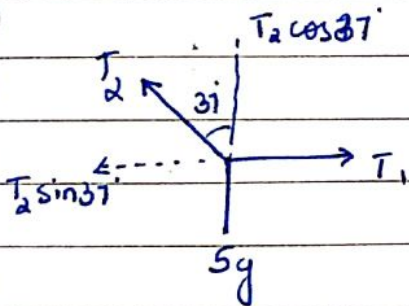 T₂ cos 37°
T₂
37°
T₂ sin 37°
T₁
5g